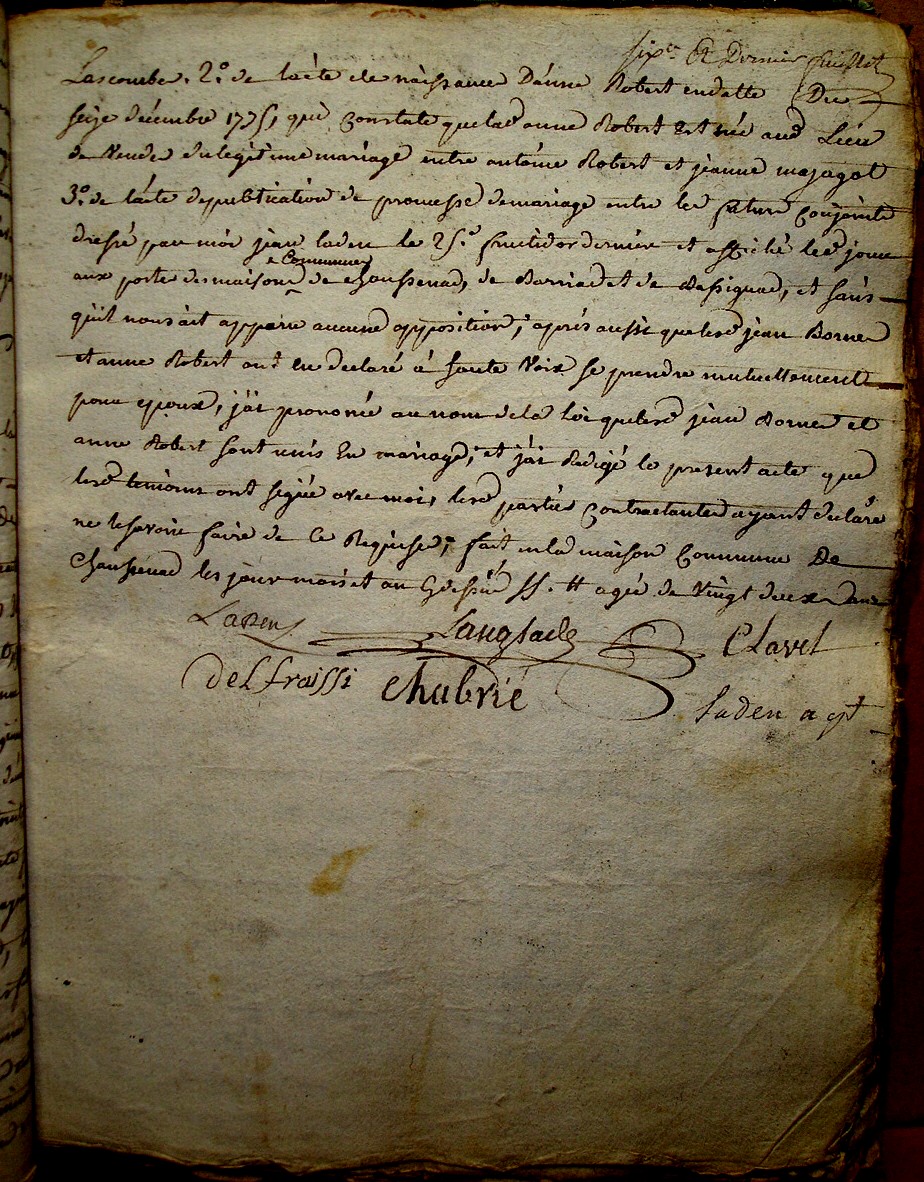 sixe et Dernier feuillet
Lascombe. 2.° de lacte de naissance Danne Robert en datte Du
seize décembre 1775, qui Constate que lad anne Robert Est née aud Lieu
de du legitime mariage entre antoine Robert et jeanne majagot
3.° de lácte de publication de promesse de mariage entre les futurs Conjoints
dressé par moi jean laden le 25.e fructidor dernier et affiché led jour
aux porte des maisons Communes de chaussenac, de Barriac et de Bassignac, et sans
quil nous ait apparu aucune opposition; aprés aussi que lesd jean Borne
et anne Robert ont eu declaré á haute Voix se prendre mutuellement
pour epoux, j'ai prononcé au nom de la loi que lesd jean Borne et
anne Robert sont unis En mariage; et j'ai Redigé le present acte que
lesd temoins ont signé avec moi, lesd partiés Contractantes ayant declaré
ne le savoir faire de ce Requises; fait en la maison Commune De
Chaussenac les jour mois et an agée de Vingt deux ans
Laden Langlade Clavel
delfraissi Chabrié
Laden agt